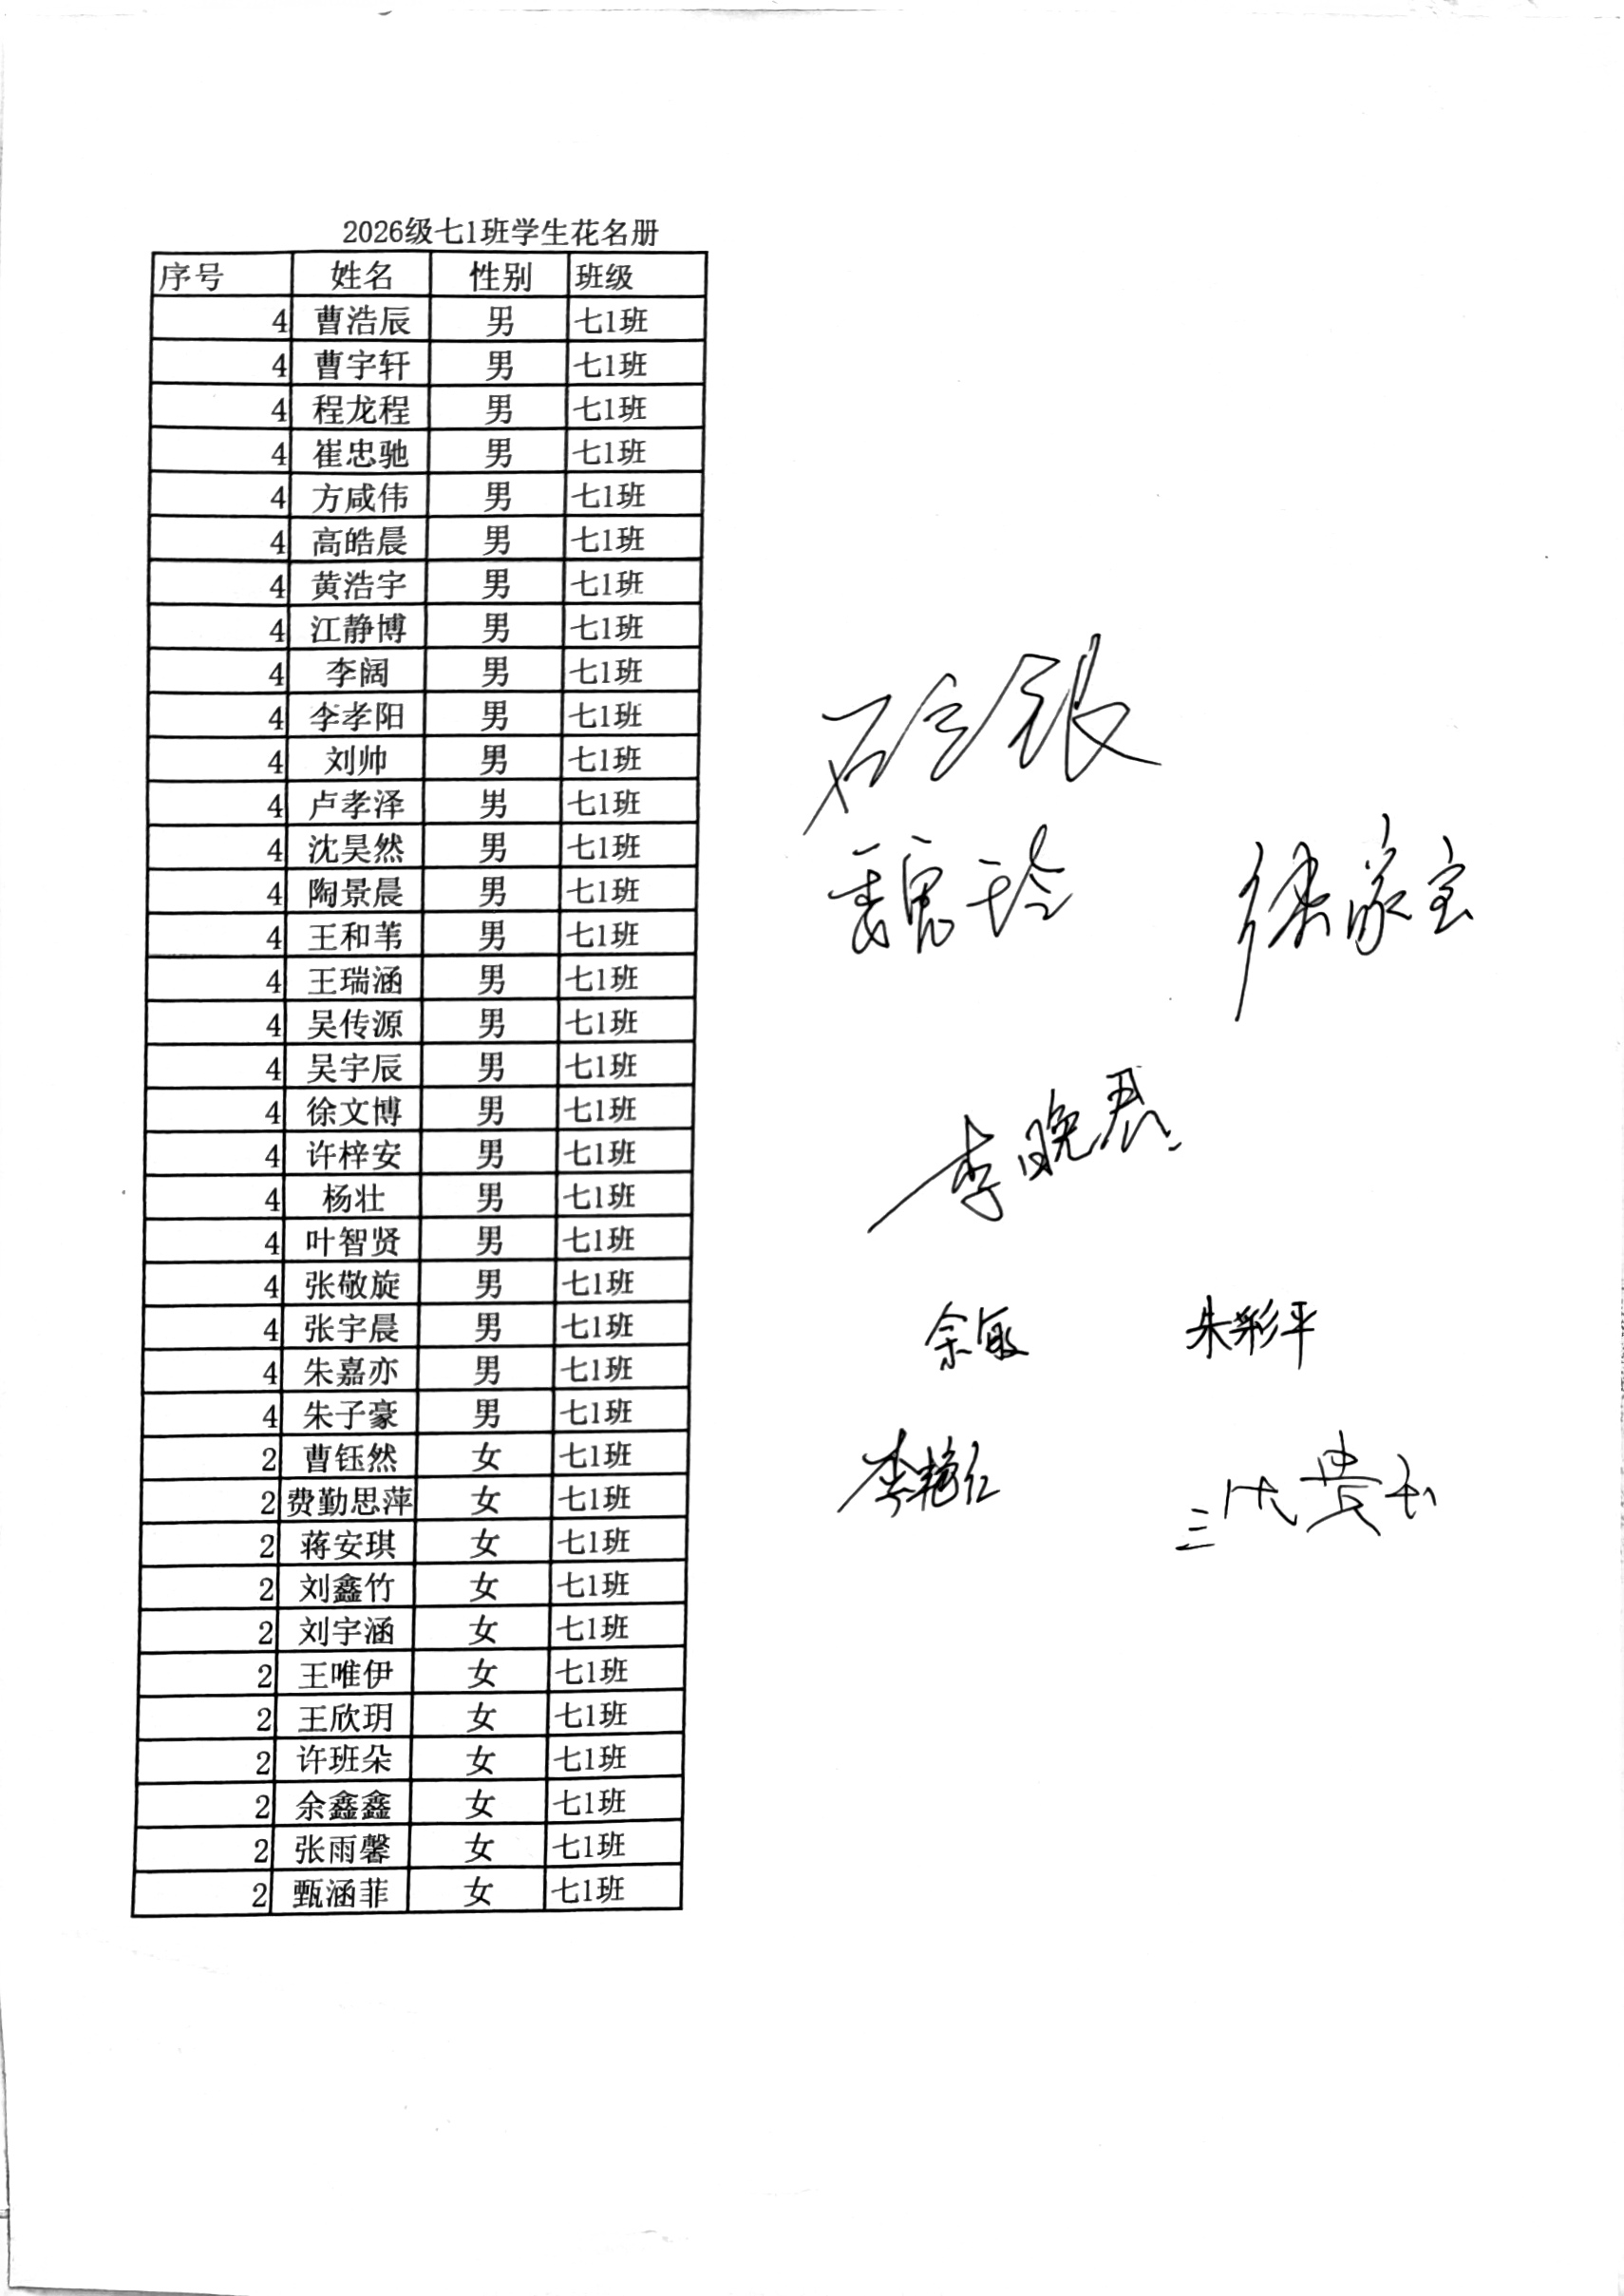 2026级七1班学生花名册
序号 姓名 性别 班级
4 曹浩辰 男 七1班
4 曹宇轩 男 七1班
4 程龙程 男 七1班
4 崔忠驰 男 七1班
4 方咸伟 男 七1班
4 高皓晨 男 七1班
4 黄浩宇 男 七1班
4 江静博 男 七1班
4 李阔 男 七1班
4 李孝阳 男 七1班
4 刘帅 男 七1班
4 卢孝泽 男 七1班
4 沈昊然 男 七1班
4 陶景晨 男 七1班
4 王和苇 男 七1班
4 王瑞涵 男 七1班
4 吴传源 男 七1班
4 吴宇辰 男 七1班
4 徐文博 男 七1班
4 许梓安 男 七1班
4 杨壮 男 七1班
4 叶智贤 男 七1班
4 张敬旋 男 七1班
4 张宇晨 男 七1班
4 朱嘉亦 男 七1班
4 朱子豪 男 七1班
2 曹钰然 女 七1班
2 费勤思萍 女 七1班
2 蒋安琪 女 七1班
2 刘鑫竹 女 七1班
2 刘宇涵 女 七1班
2 王唯伊 女 七1班
2 王欣玥 女 七1班
2 许班朵 女 七1班
2 余鑫鑫 女 七1班
2 张雨馨 女 七1班
2 甄涵菲 女 七1班
魏玲
李晚君
余敏 朱彩平
李艳红